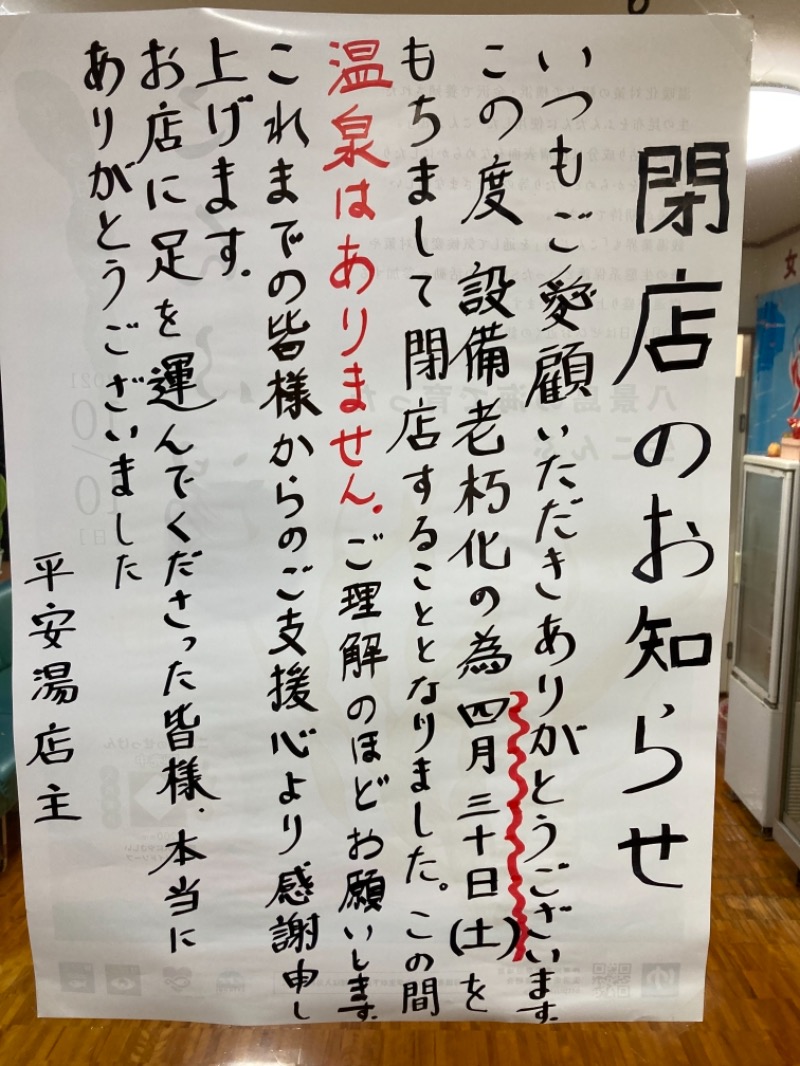 閉店のお知らせ
いつもご愛顧いただきありがとうございます
この度 設備老朽化の為 四月三十日(土)を
もちまして閉店することとなりました。この間
温泉はありません。ご理解のほどお願いします。
これまでの皆様からのご支援心より感謝申し
上げます。
お店に足を運んでくださった皆様、本当に
ありがとうございました
平安湯店主
女